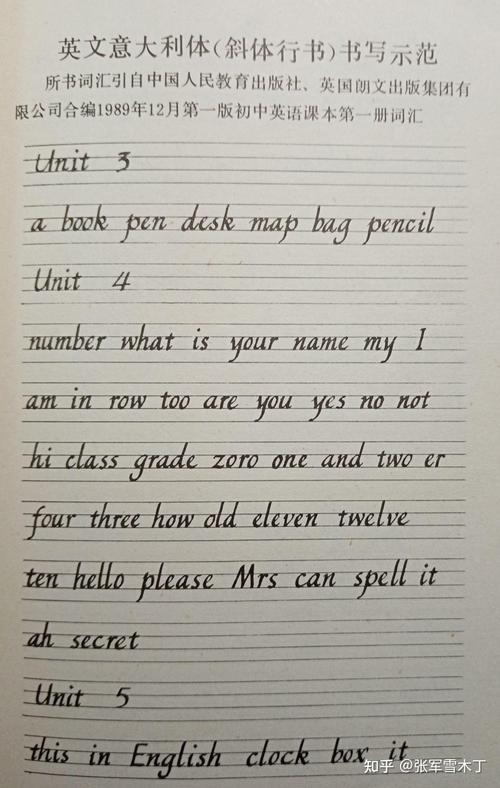 英文意大利体(斜体行书)书写示范
所书词汇引自中国人民教育出版社、英国朗文出版集团有
限公司合编1989年12月第一版初中英语课本第一册词汇
Unit 3
a book pen desk map bag pencil
Unit 4
number what is your name my I
am in row too are you yes no not
hi class grade zoro one and two er
four three how old eleven twelve
ten hello please Mrs can spell it
ah secret
Unit 5
this in English clock box it
知乎 @张军雪木丁